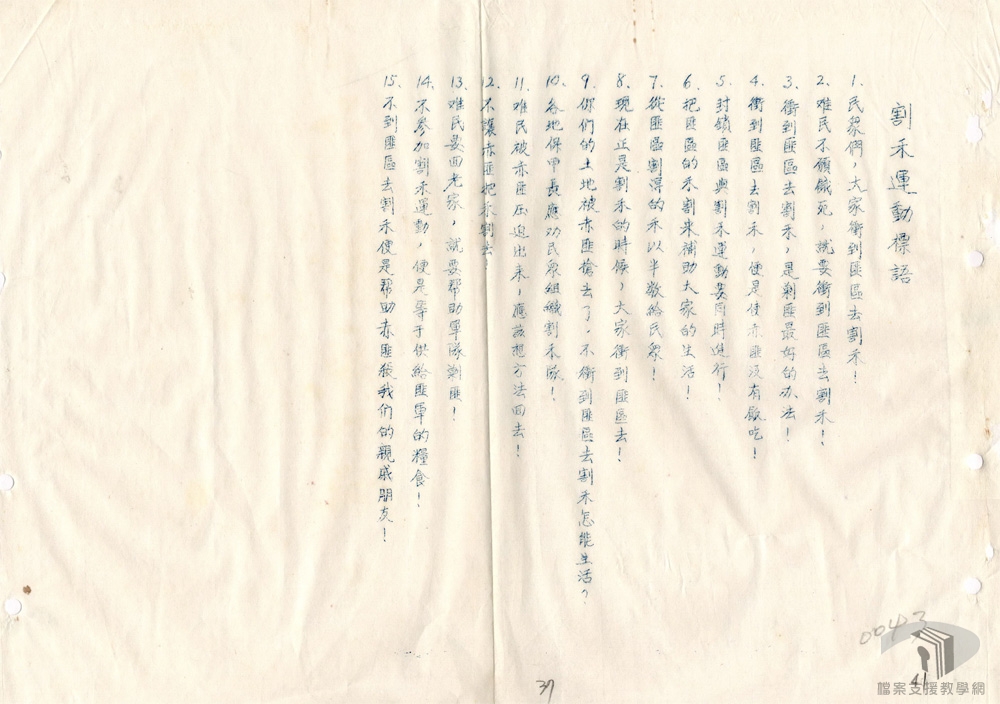 割禾運動標語
1. 民眾們，大家衝到匪區去割禾！
2. 难民不願餓死，就要衝到匪區去割禾！
3. 衝到匪區去割禾，是剿匪最好的办法！
4. 衝到匪區去割禾，便是使赤匪沒有飯吃！
5. 封鎖匪區與割禾運動要同時進行！
6. 把匪區的禾割來補助大家的生活！
7. 從匪區割得的禾以半数給民众！
8. 現在正是割禾的時候，大家衝到匪區去！
9. 你們的土地被赤匪搶去了，不衝到匪區去割禾怎能生活？
10. 各地保甲長應劝民众組織割禾隊！
11. 难民被赤匪压迫出來，應該想方法回去！
12. 不讓赤匪把禾割去！
13. 难民要回老家，就要帮助軍隊剿匪！
14. 不参加割禾運動，便是等于供給匪軍的糧食！
15. 不到匪區去割禾便是帮助赤匪殺我们的親戚朋友！
0043
41
37
檔案支援教學網